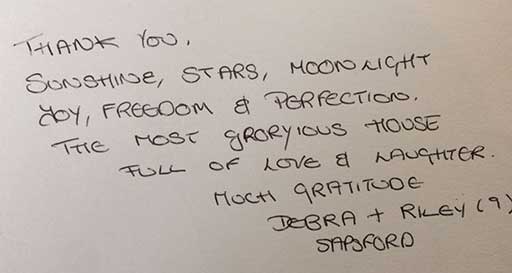 THANK YOU,
SUNSHINE, STARS, MOONLIGHT
JOY, FREEDOM & PERFECTION.
THE MOST GRORYIOUS HOUSE
FULL OF LOVE & LAUGHTER.
MUCH GRATITUDE
DEBRA + RILEY (9)
SAPSFORD